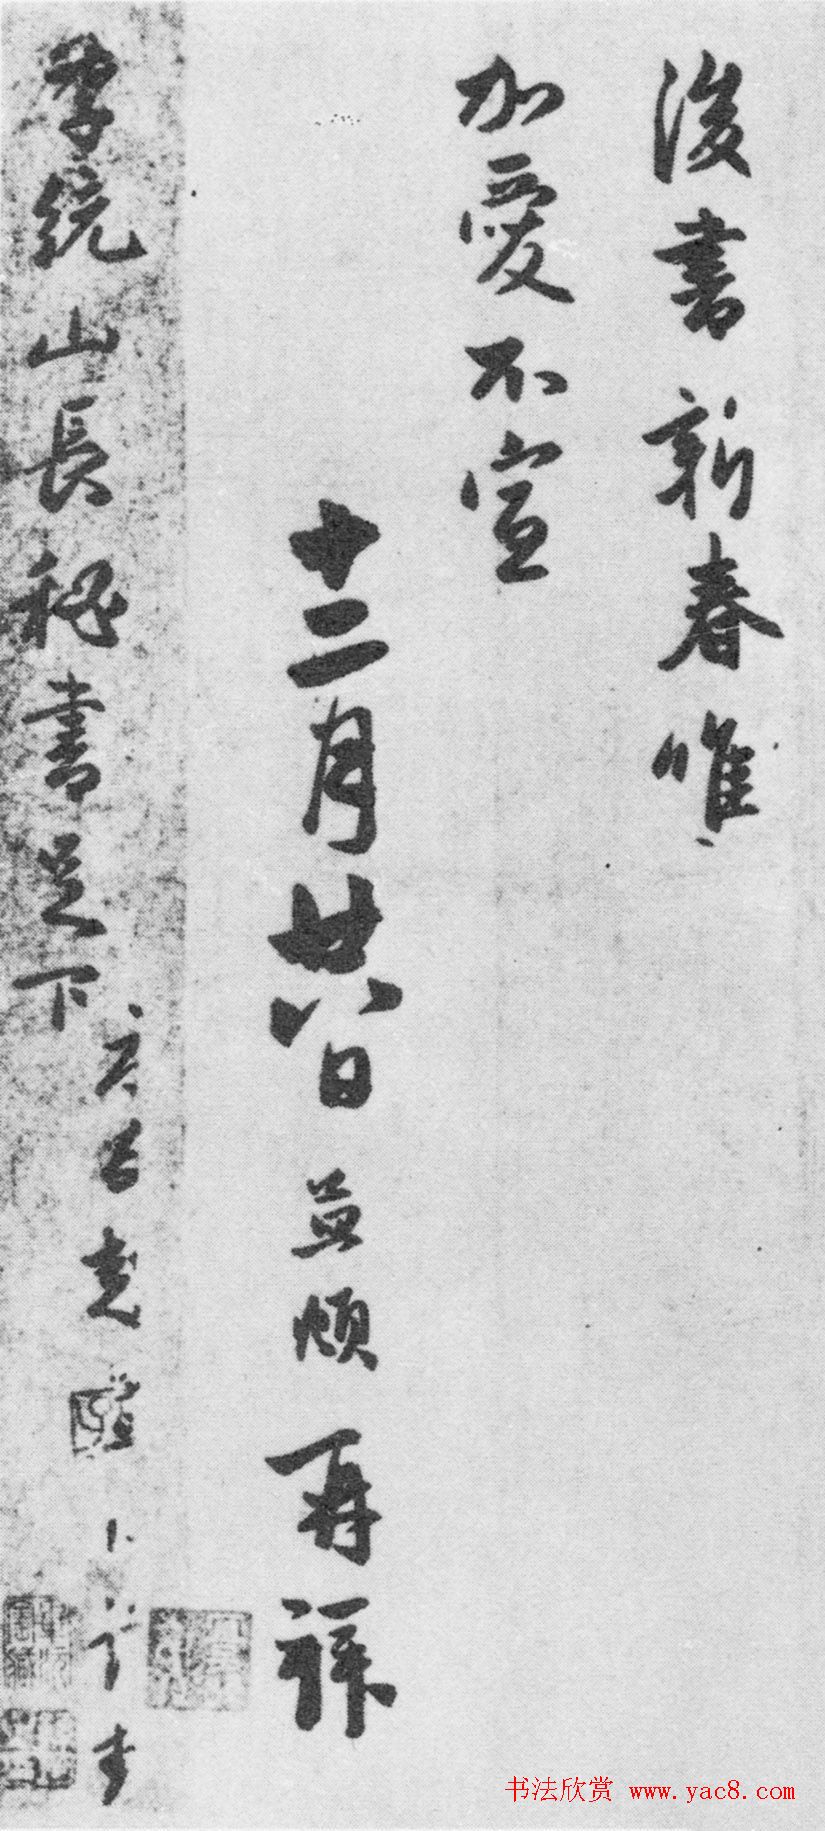 後書新春唯
加愛不宣
十二月廿八日益頓再拜
李統山長秘書足下
书法欣赏 www.yac8.com